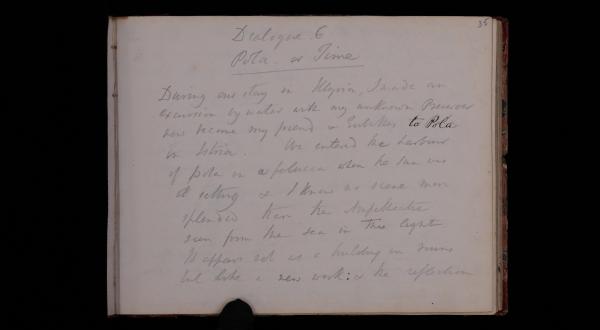 35
Dialogue 6
Pola. or Time
During our stay in Illyria, I made an
excursion by water with my unknown Preserver
now become my friend & Eubathes to Pola
in Istria. We entered the harbour
of Pola in a felucca when the sun was
at setting & I know no scene more
splendid than the Amphitheatre
seen from the sea in this light
It appears not as a building in ruins
but like a new work: & the reflection